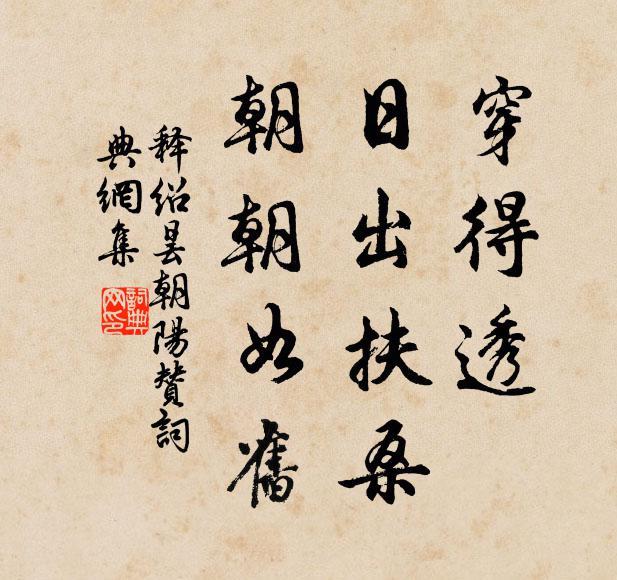 穿得透
日出扶桑
朝朝如舊
釋紹曇朝陽贊詞
典網集
詞典
网印